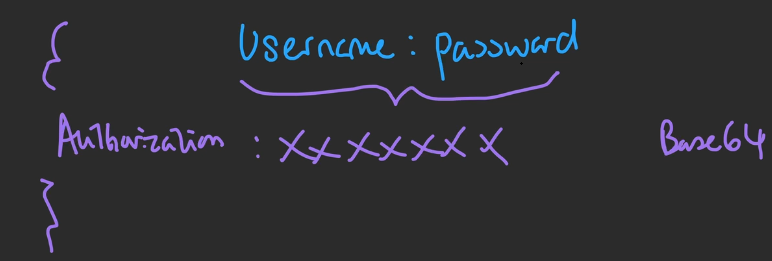 {
Username : password
Authorization : XXXXXXX Base64
}